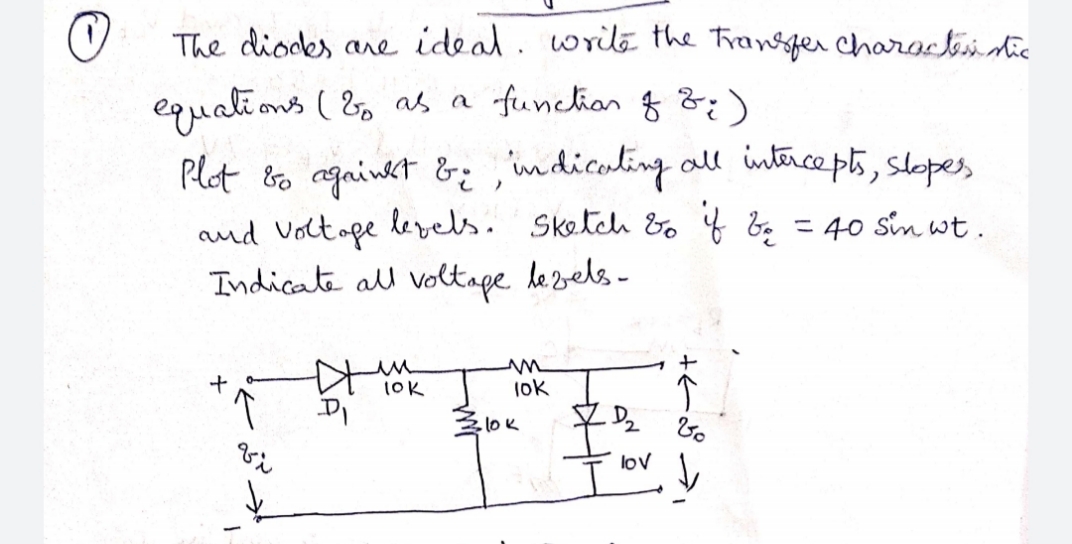 1 The diodes are ideal. write the transfer characteristic
equations (v₀ as a function of vᵢ)
Plot v₀ against vᵢ, indicating all intercepts, slopes,
and voltage levels. Sketch v₀ if vᵢ = 40 sin wt.
Indicate all voltage levels-
+ D₁ 10K 10K +
10K D₂ v₀
vᵢ 10V
- -